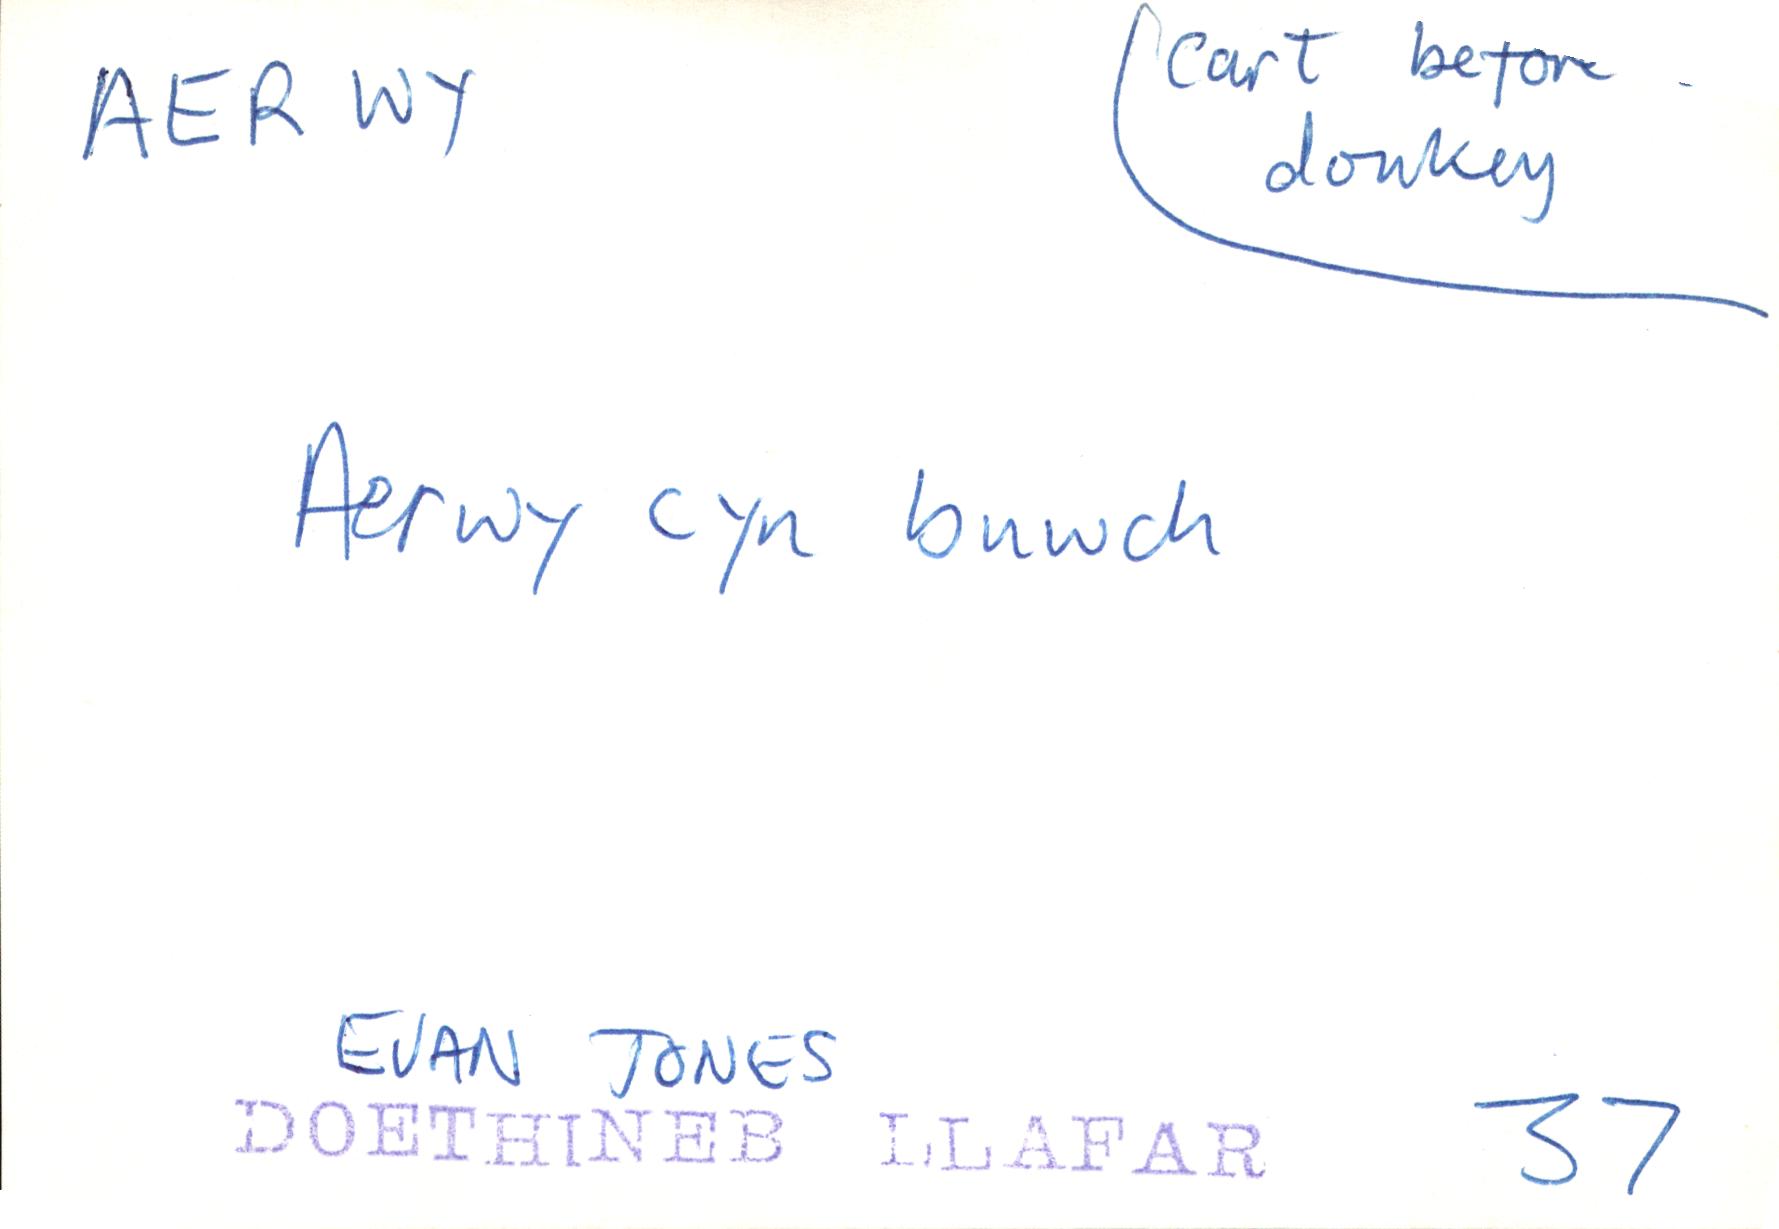 AERWY
Cart before
donkey
Aerwy cyn buwch
EVAN JONES
DOETHINEB LLAFAR
37